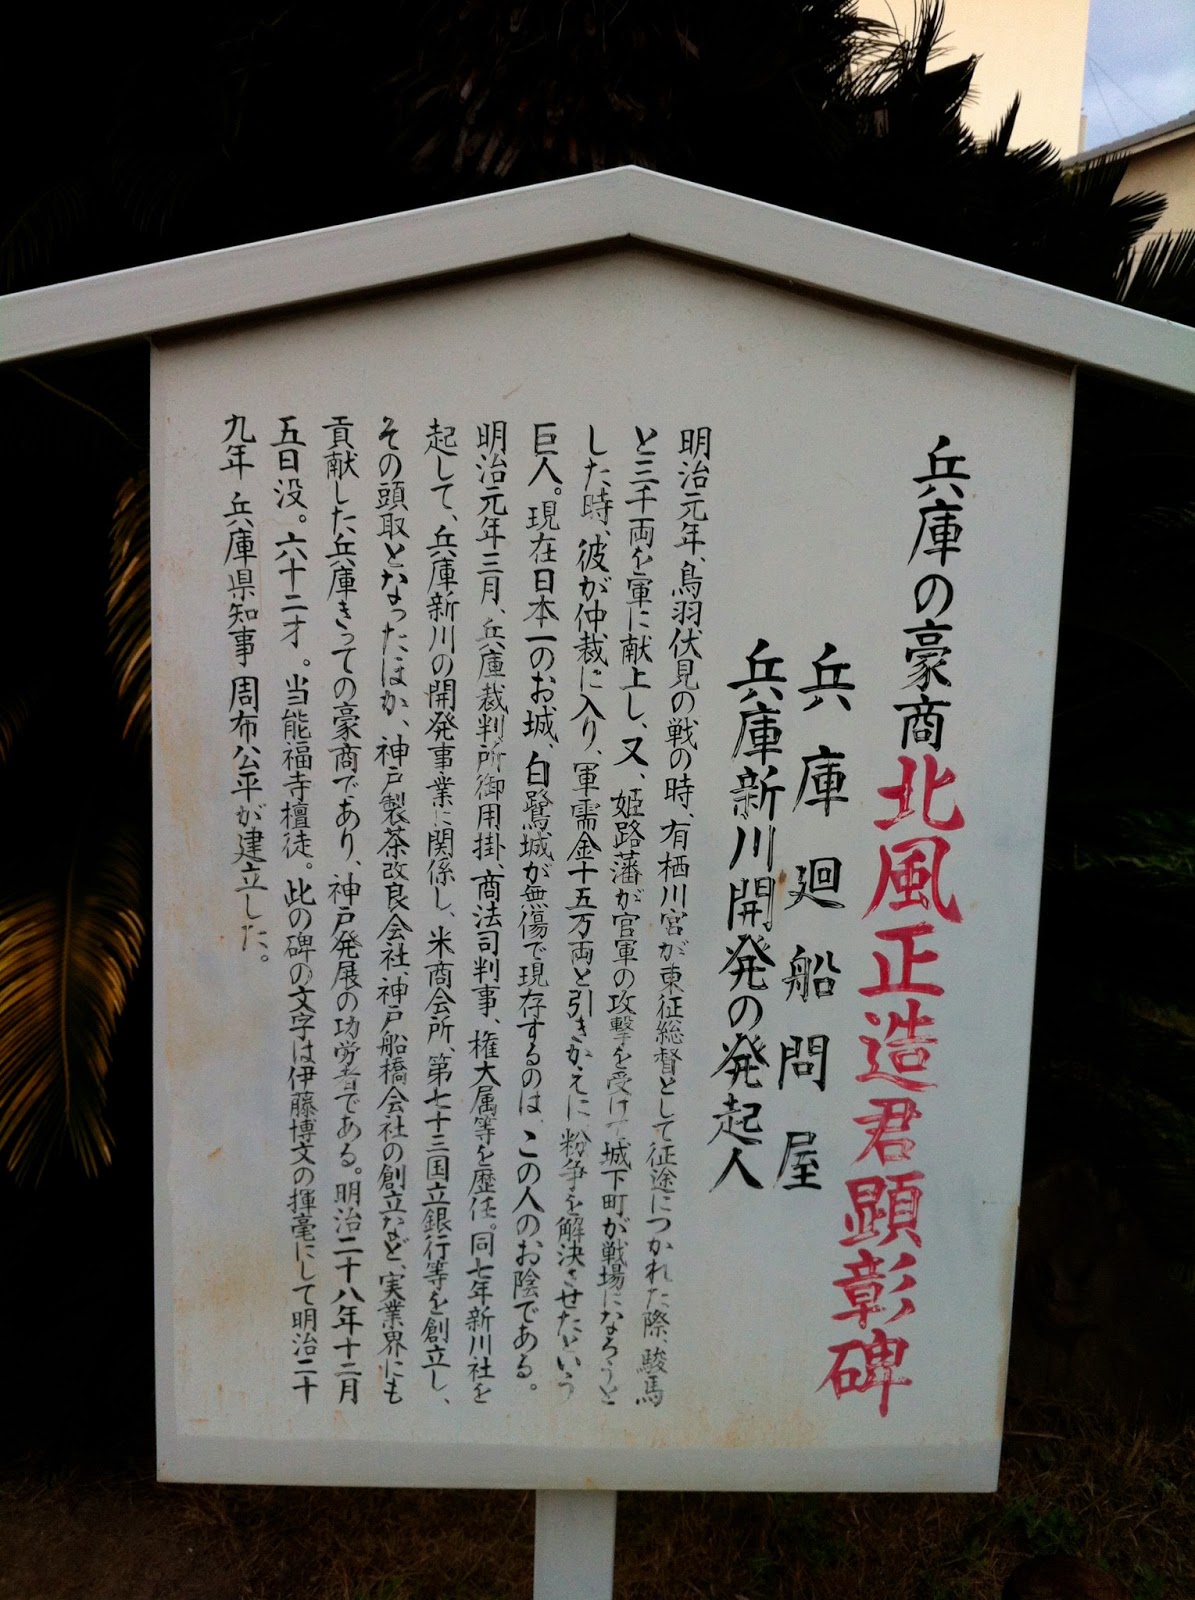 兵庫の豪商北風正造君顕彰碑
兵庫廻船問屋
兵庫新川開発の発起人
明治元年、鳥羽伏見の戦の時、有栖川宮が東征総督として征途につかれた際、駿馬
と三千両を軍に献上し、又、姫路藩が官軍の攻撃を受けて城下町が戦場になろうと
した時、彼が仲裁に入り、軍需金十五万両と引きかえに紛争を解決させたという
巨人。現在日本一のお城、白鷺城が無傷で現存するのは、この人のお陰である。
明治元年三月、兵庫裁判所御用掛、商法司判事、権大属等を歴任。同七年新川社を
起して、兵庫新川の開発事業に関係し、米商会所、第七十三国立銀行等を創立し、
その頭取となったほか、神戸製茶改良会社、神戸船橋会社の創立など、実業界にも
貢献した兵庫きっての豪商であり、神戸発展の功労者である。明治二十八年十二月
五日没。六十二才。当能福寺檀徒。此の碑の文字は伊藤博文の揮毫にして明治二十
九年 兵庫県知事 周布公平が建立した。